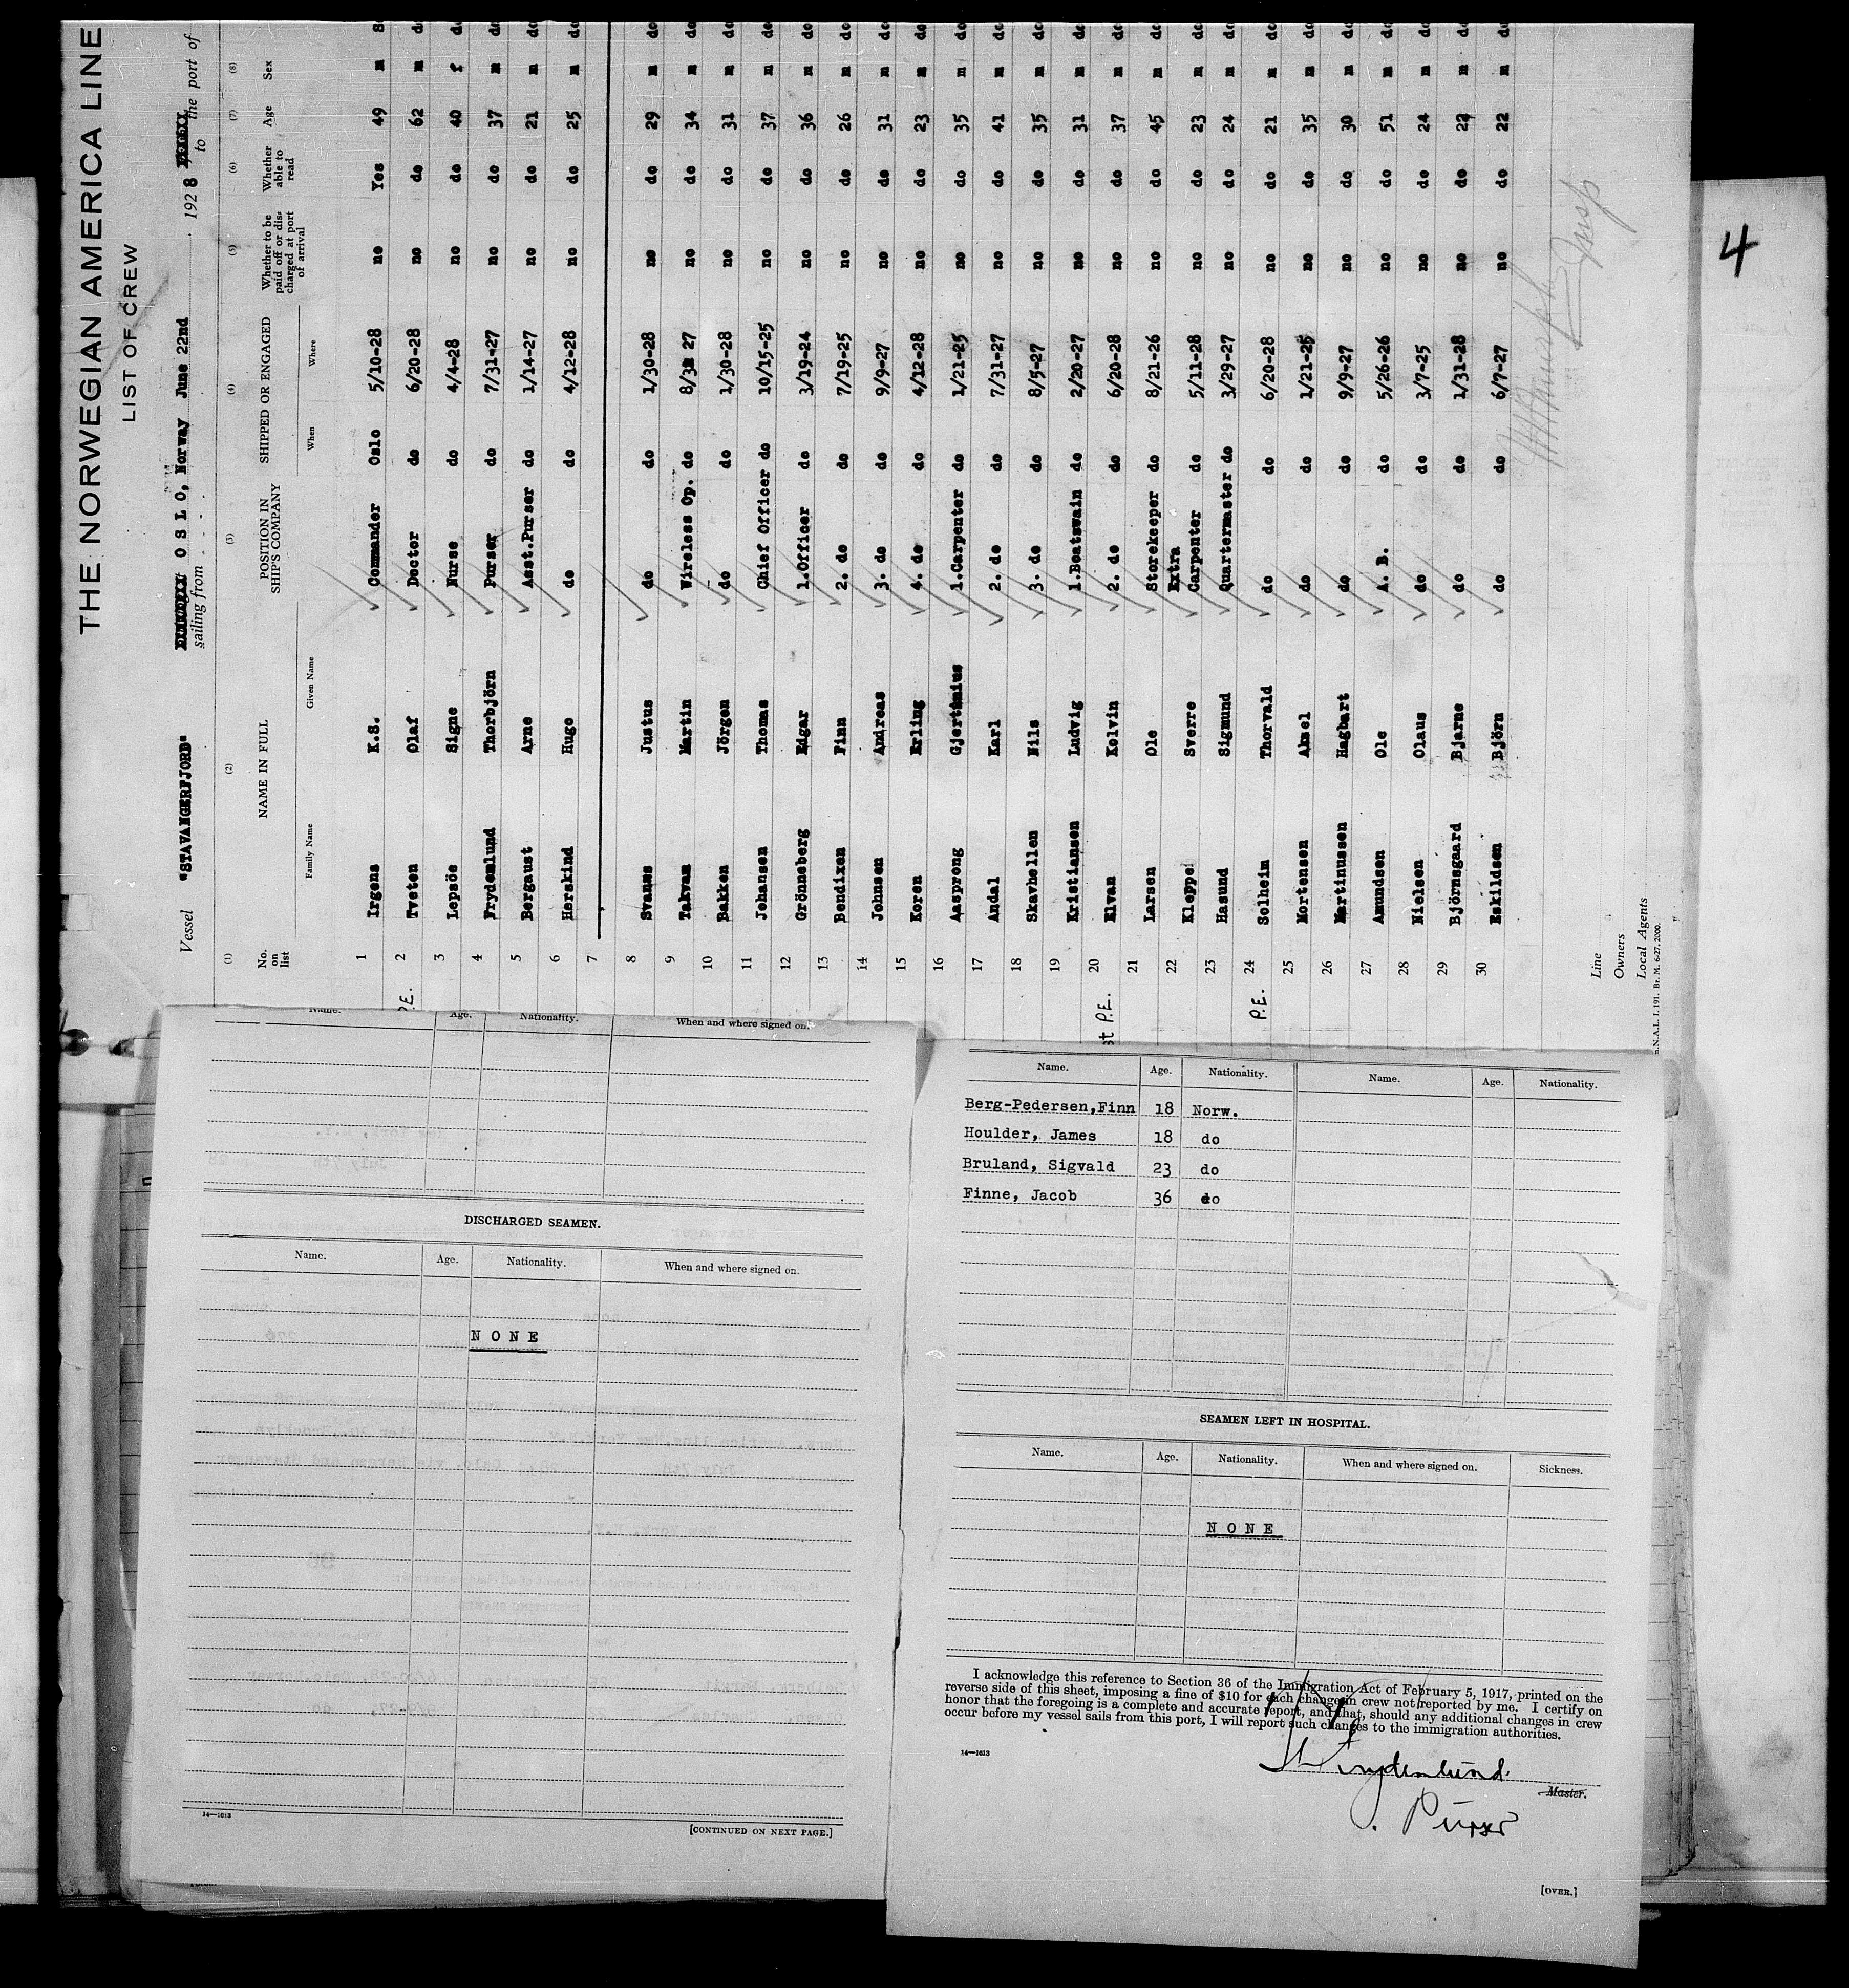 THE NORWEGIAN AMERICA LINE
LIST OF CREW
Vessel "STAVANGERFJORD" sailing from O S L O, Norway June 22nd 1928 to the port of
(1) (2) (3) (4) (5) (6) (7) (8)
No. on list NAME IN FULL POSITION IN SHIP'S COMPANY SHIPPED OR ENGAGED Whether to be paid off or discharged at port of arrival Whether able to read Age Sex
Family Name Given Name When Where
1 Irgens K.S. Commander Oslo 5/10-28 no Yes 49 m
2 Tveten Olaf Doctor do 6/20-28 no do 62 m
3 Lepsöe Signe Nurse do 4/4-28 no do 40 f
4 Frydenlund Thorbjörn Purser do 7/31-27 no do 37 m
5 Bergaust Arne Asst.Purser do 1/14-27 no do 21 m
6 Herskind Hugo do do 4/12-28 no do 25 m
7
8 Svanæs Justus do do 1/30-28 no do 29 m
9 Takvam Martin Wireless Op. do 8/31 27 no do 34 m
10 Bakken Jörgen do do 1/30-28 no do 31 m
11 Johansen Thomas Chief Officer do 10/15-25 no do 37 m
12 Grönneberg Edgar 1.Officer do 3/19-24 no do 36 m
13 Bendixen Finn 2. do do 7/19-25 no do 26 m
14 Johnsen Andreas 3. do do 9/9-27 no do 31 m
15 Koren Erling 4. do do 4/12-28 no do 23 m
16 Aasprong Gjertinius 1.Carpenter do 1/21-25 no do 35 m
17 Andal Karl 2. do do 7/31-27 no do 41 m
18 Skavhellen Nils 3. do do 8/5-27 no do 35 m
19 Kristiansen Ludvig 1.Boatswain do 2/20-27 no do 31 m
20 Elvan Kolvin 2. do do 6/20-28 no do 37 m
21 Larsen Ole Storekeeper do 8/21-26 no do 45 m
22 Kleppe Sverre Extra Carpenter do 5/11-28 no do 23 m
23 Hasund Sigmund Quartermaster do 3/29-27 no do 24 m
24 Solheim Thorvald do do 6/20-28 no do 21 m
25 Mortensen Aksel do do 1/21-25 no do 35 m
26 Martinussen Hagbart do do 9/9-27 no do 30 m
27 Amundsen Ole A. B. do 5/26-26 no do 51 m
28 Nielsen Claus do do 3/7-25 no do 24 m
29 Björnsgaard Bjarne do do 1/31-28 no do 22 m
30 Eskildsen Björn do do 6/7-27 no do 22 m
P.E.
st P.E.
P.E.
Line
Owners
Local Agents
4
Name. Age. Nationality. When and where signed on.
DISCHARGED SEAMEN.
Name. Age. Nationality. When and where signed on.
N O N E
14—1613
[CONTINUED ON NEXT PAGE.]
Name. Age. Nationality. Name. Age. Nationality.
Berg-Pedersen,Finn 18 Norw.
Houlder, James 18 do
Bruland, Sigvald 23 do
Finne, Jacob 36 do
SEAMEN LEFT IN HOSPITAL.
Name. Age. Nationality. When and where signed on. Sickness.
N O N E
I acknowledge this reference to Section 36 of the Immigration Act of February 5, 1917, printed on the
reverse side of this sheet, imposing a fine of $10 for each change in crew not reported by me. I certify on
honor that the foregoing is a complete and accurate report, and that, should any additional changes in crew
occur before my vessel sails from this port, I will report such changes to the immigration authorities.
14—1613
Th Frydenlund.
Master.
Purser
[OVER.]